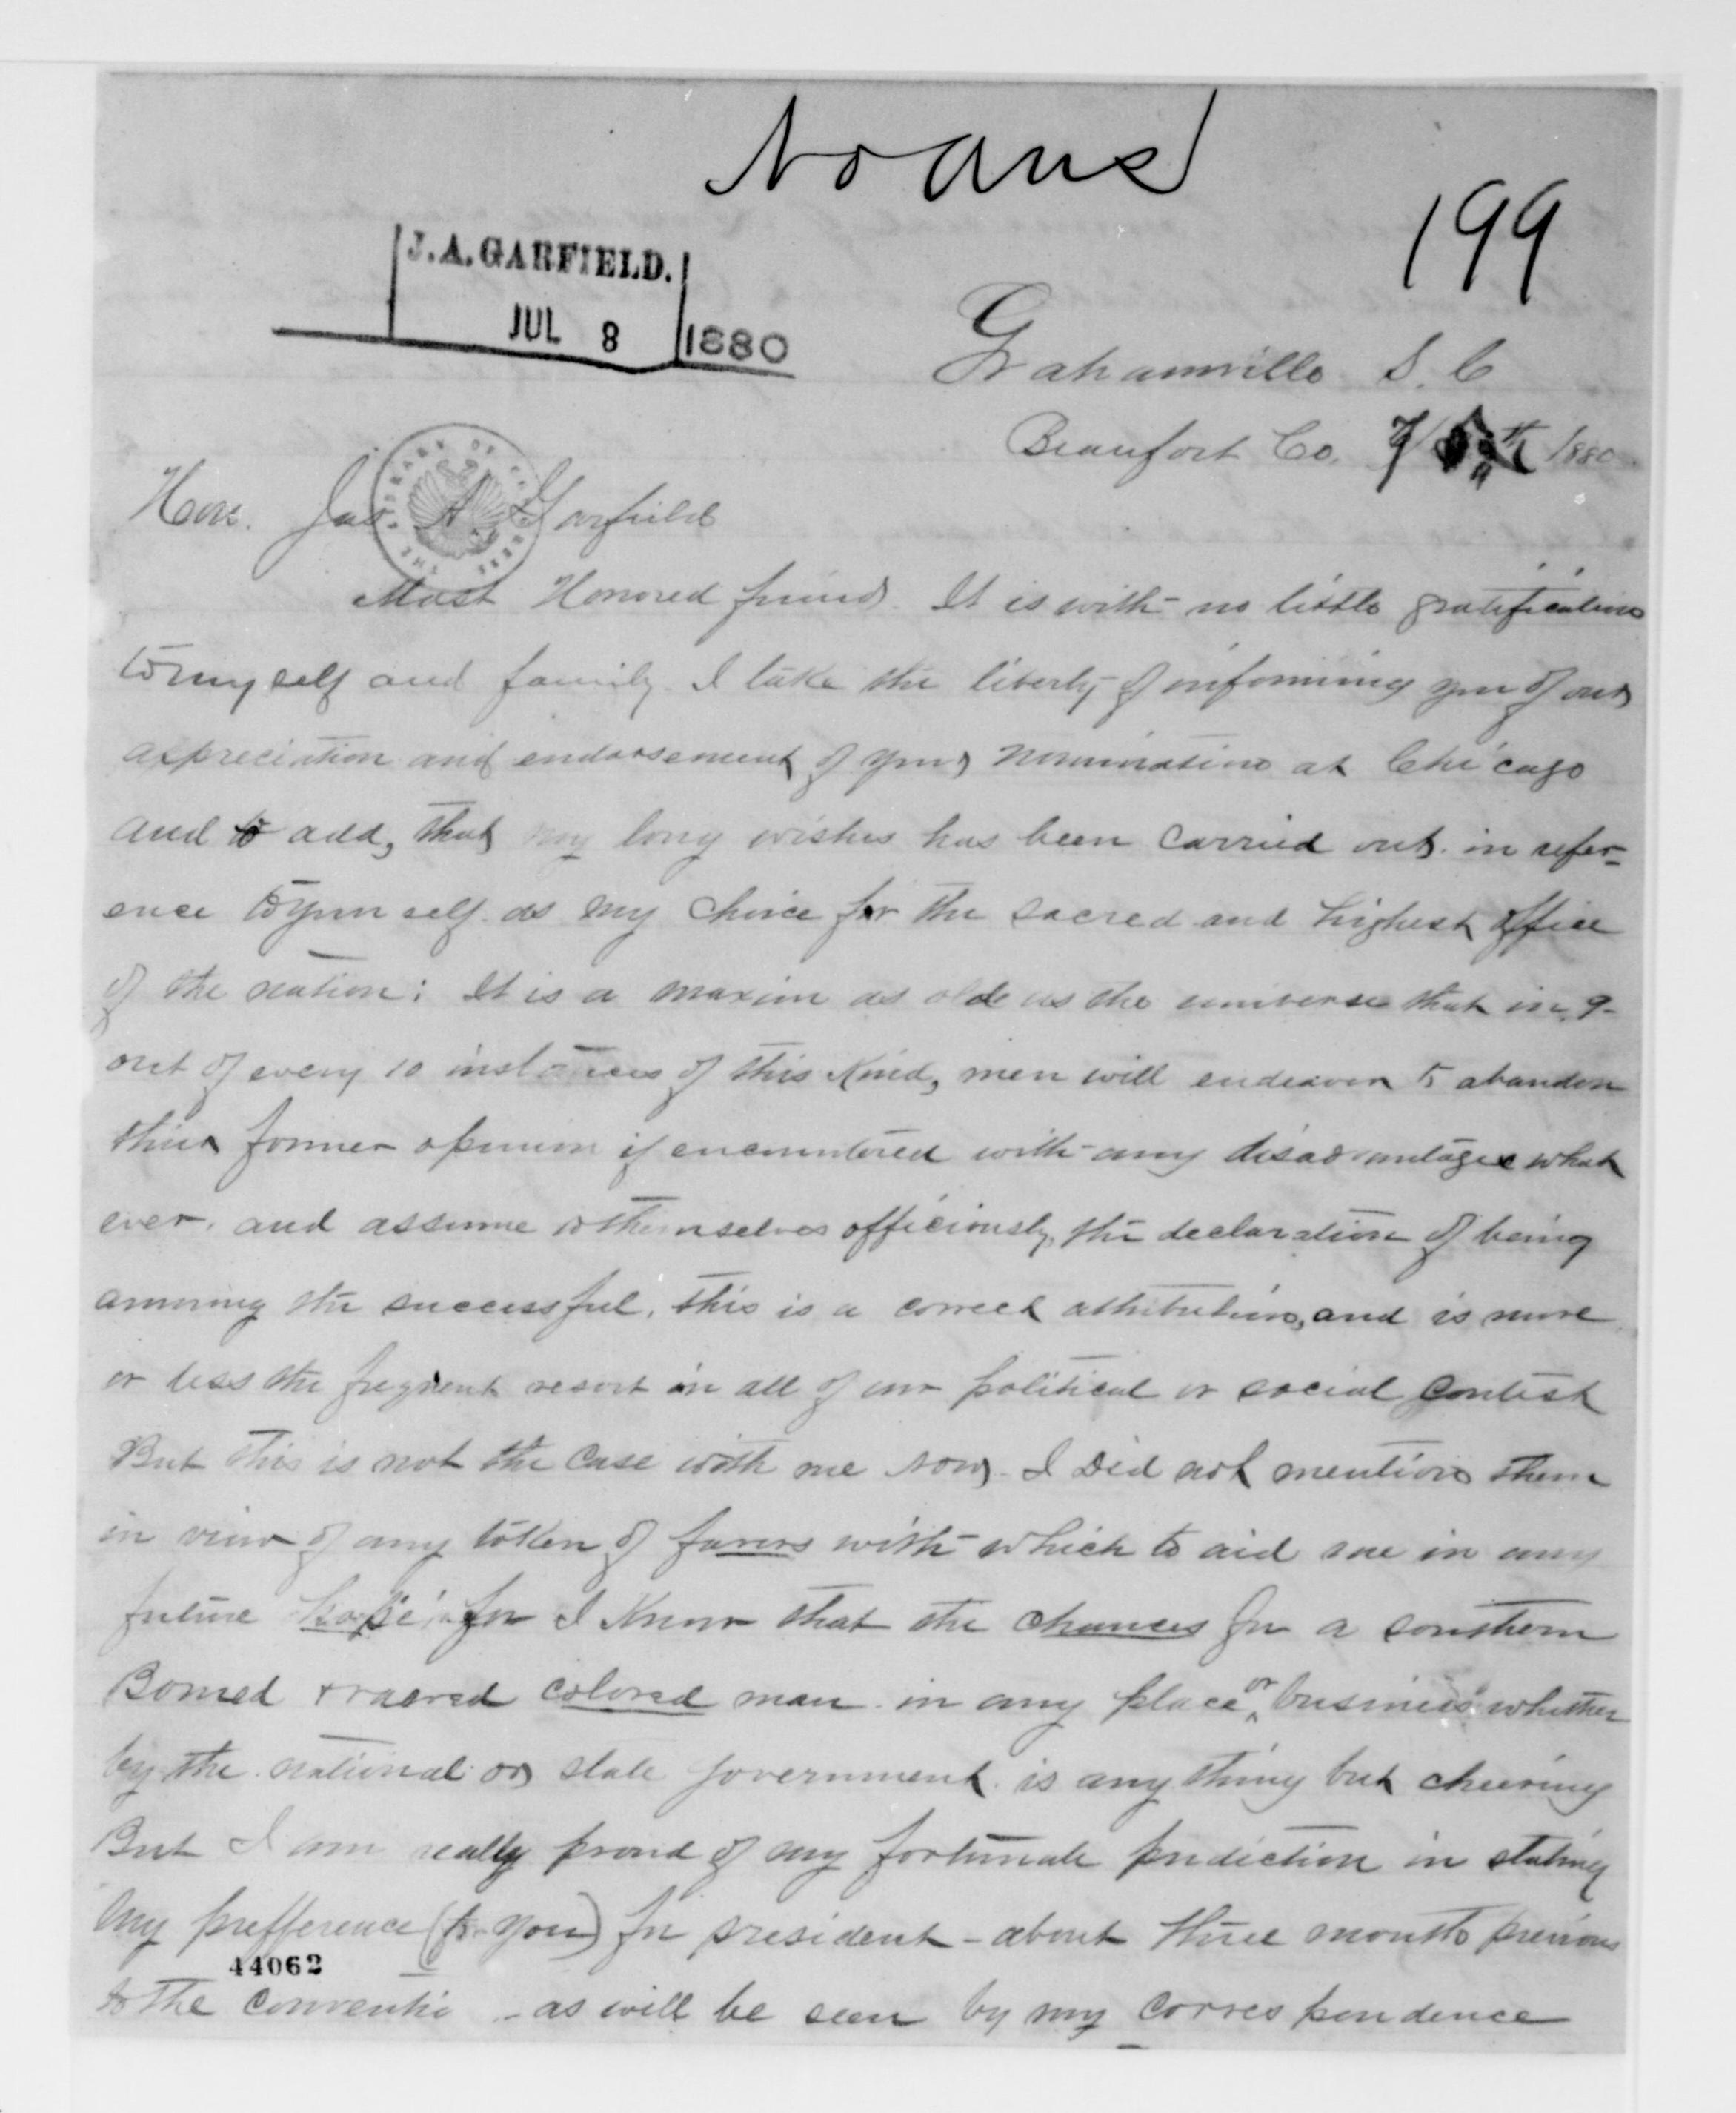 No ans
199
J. A. GARFIELD.
JUL 8 1880
Grahamville S. C
Beaufort Co. 7/ th 1880
Hon. Jas A Garfield
LIBRARY OF CONGRESS THE
Most Honored friend. It is with no little gratification
to my self and family I take the liberty of informing you of our
appreciation and endorsement of your nomination at Chicago
and to add, that my long wishes has been carried out. in refer-
ence to your self as my choice for the sacred and highest office
of the nation: It is a maxim as olde as the universe that in 9-
out of every 10 instances of this Kind, men will endeavor to abandon
their former opinion if encountered with any disadvantages what
ever. and assume to themselves officiously, the declaration of being
amoung the successful. this is a correct attribution, and is more
or less the frequent resort in all of our political or social contest
But this is not the case with me now. I did not mention them
in view of any token of favors with which to aid me in any
future hope, for I Know that the chances for a southern
Borned & raered colored man in any place or business whether
by the national or state government. is any thing but cheering
But I am really proud of my fortunate prediction in stating
my prefference (to you) for president - about three months previous
44062
to the conventi - as will be seen by my correspondence